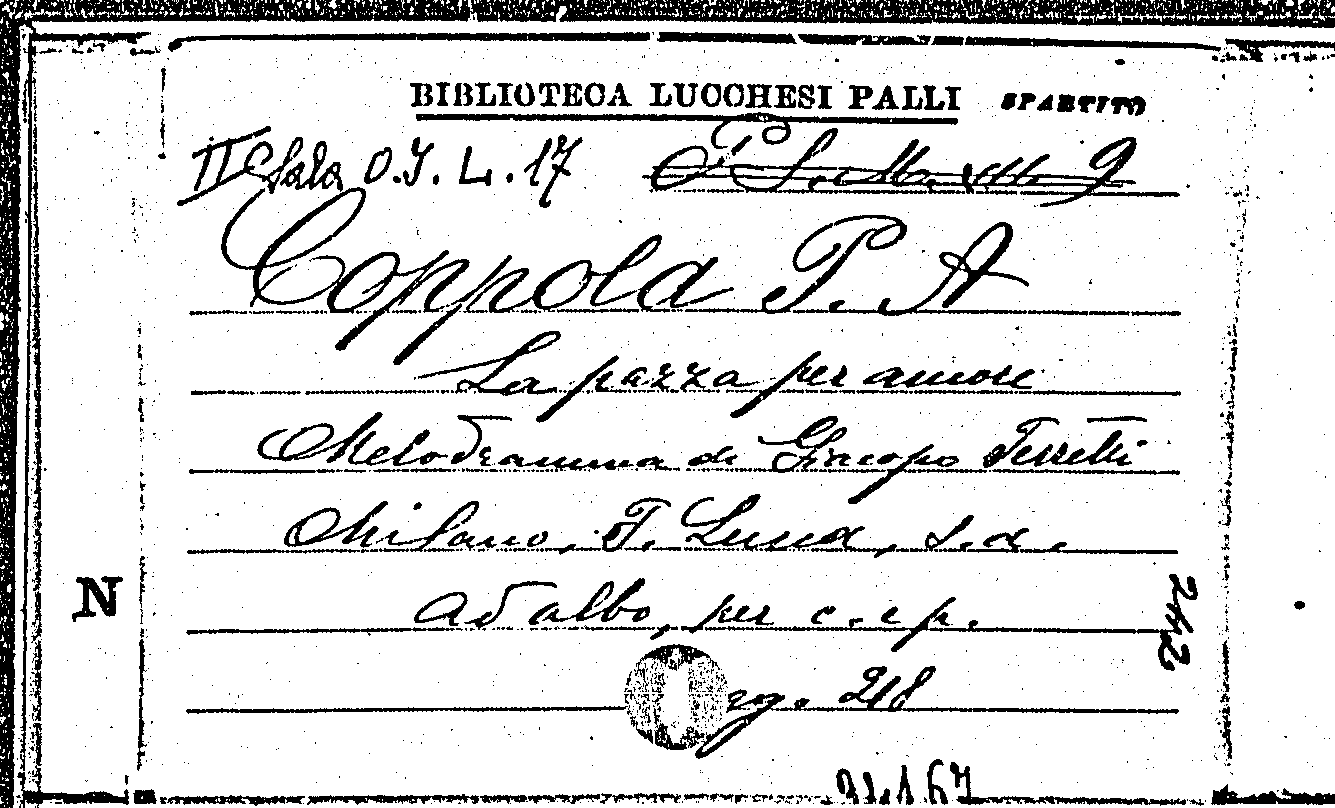 BIBLIOTECA LUCCHESI PALLI SPARTITO
II Sala O.I. L. 17
Coppola P. A
La pazza per amore
Melodramma di Giacopo Ferretti
Milano, F. Lucca, s.d.
ad albo, per c. e p.
N
pag. 218